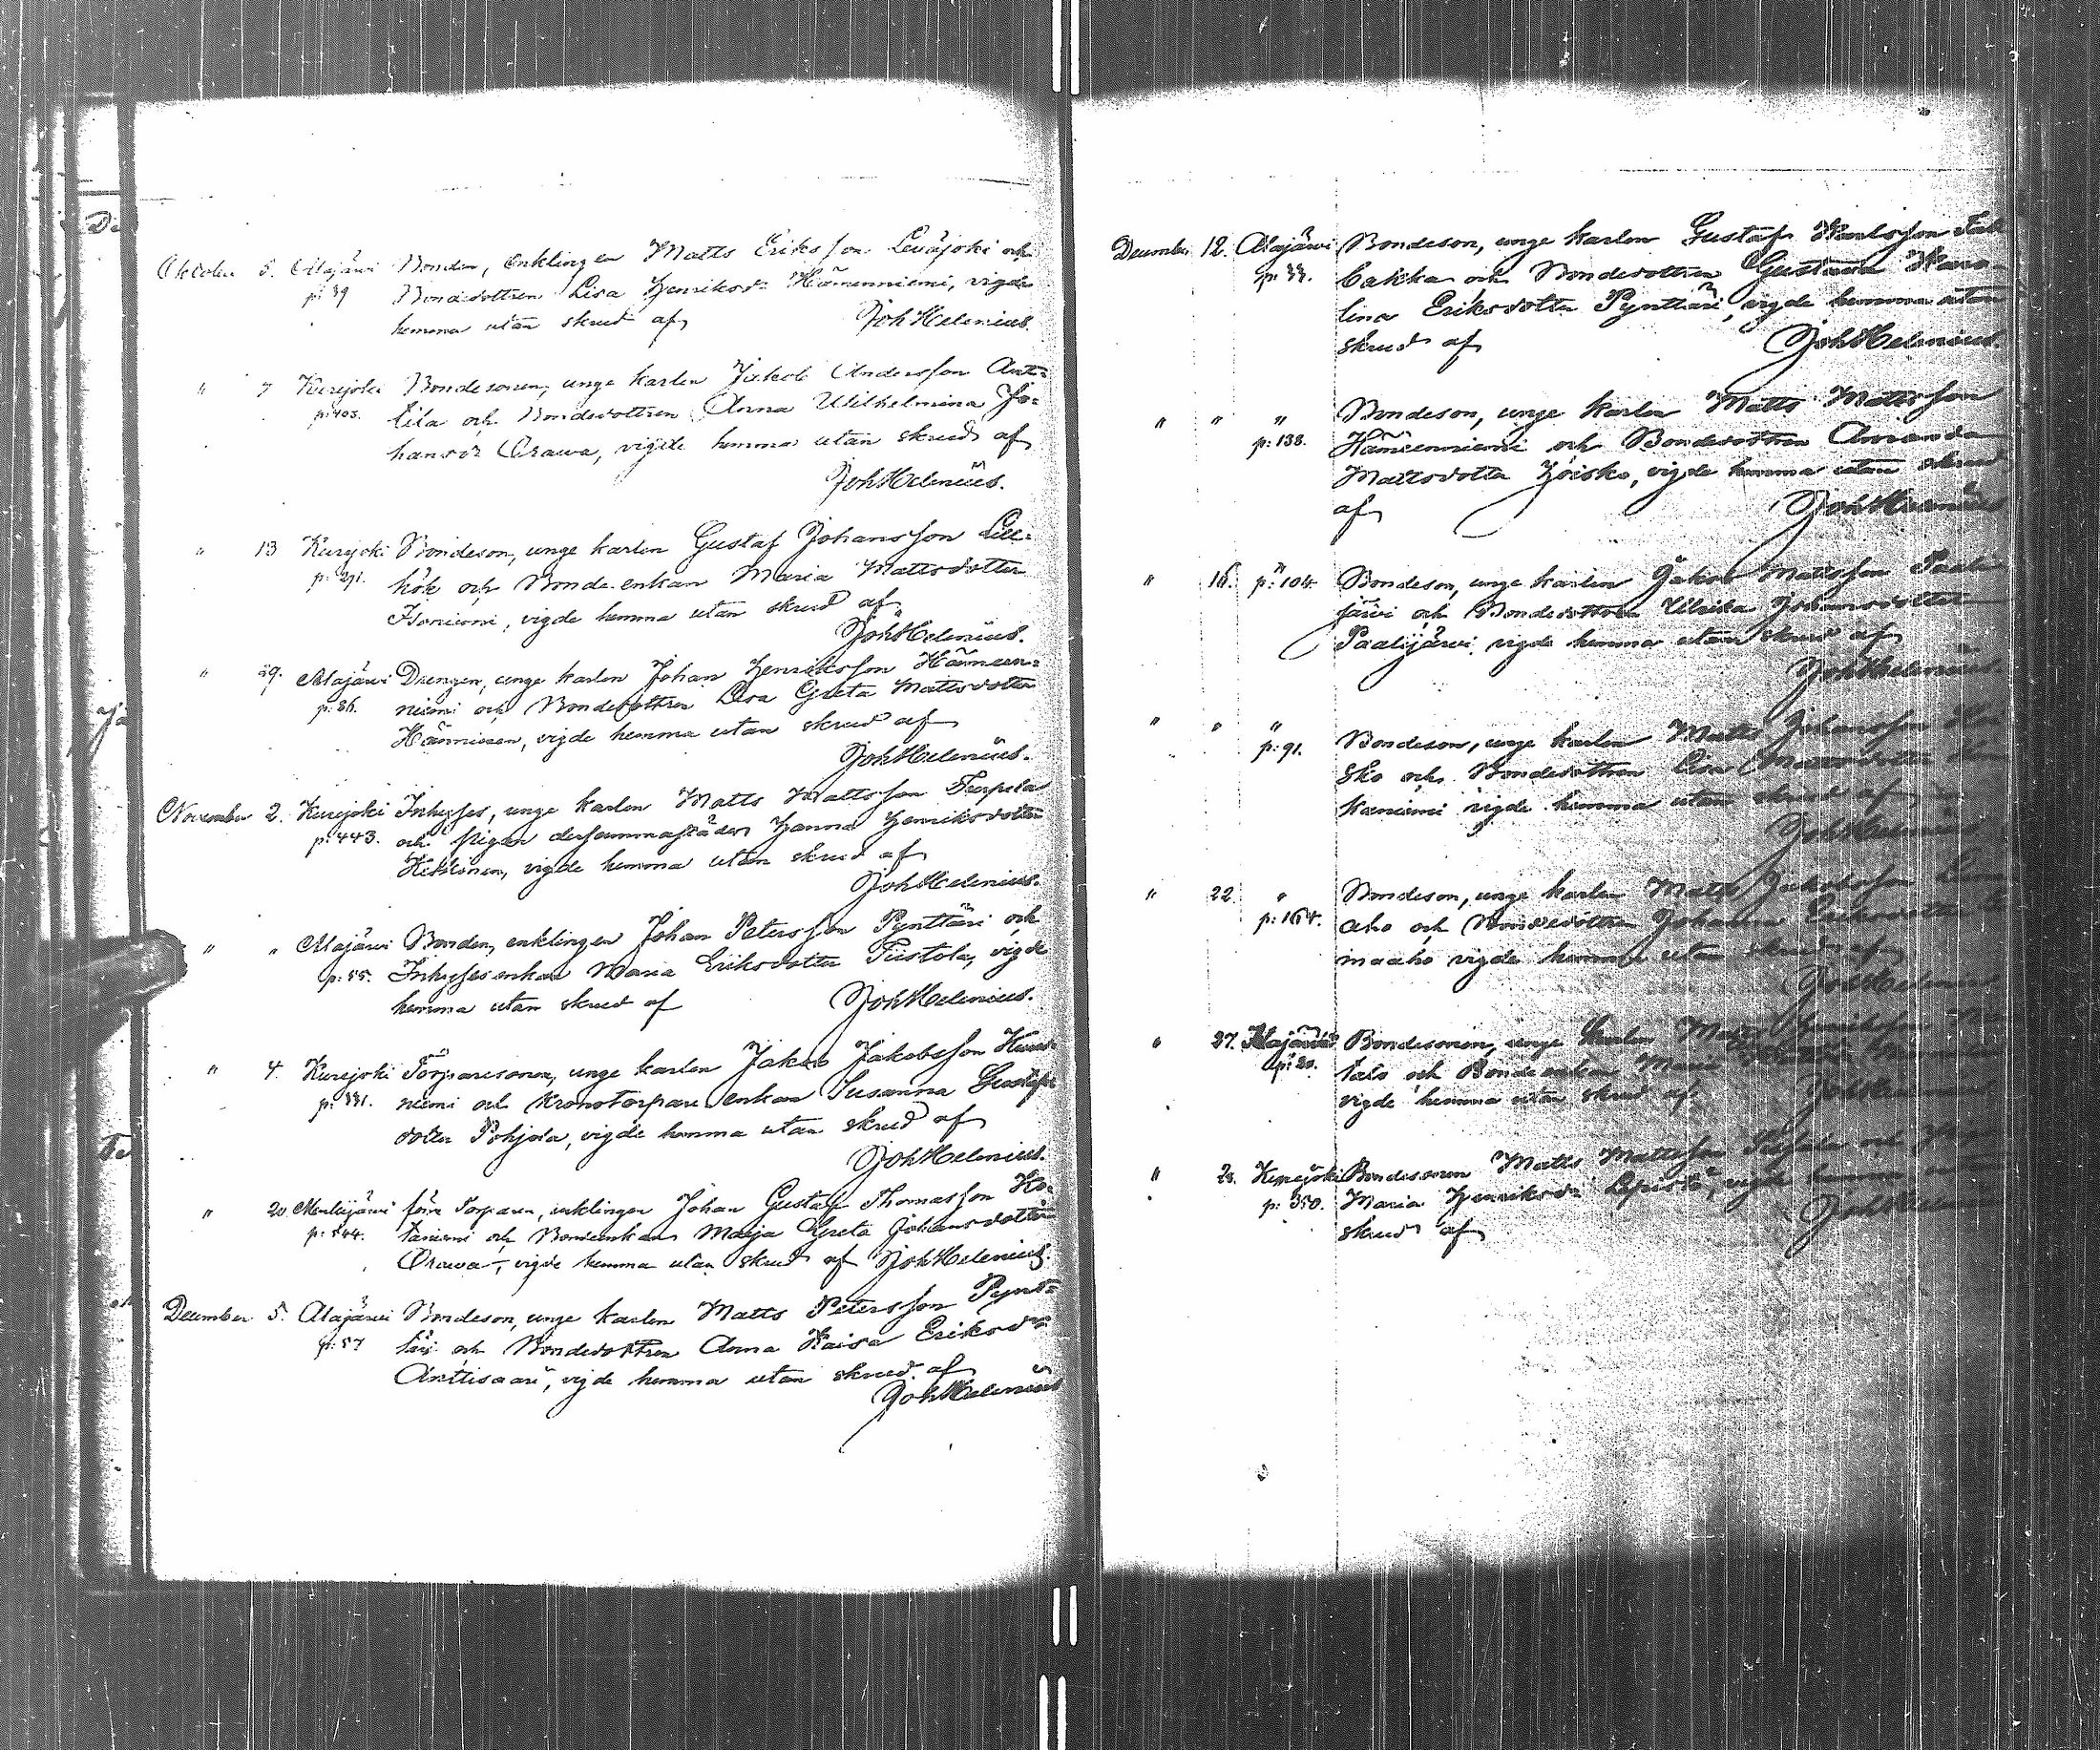 Oktober 5. Alajärvi Bonden, Enklingen Matts Eriksson Leväjoki och
p: 39 Bondedottren Lisa Henriksdr Hämenniemi, vigde
hemma utan skrud af Joh Helenius.
" 7 Kurejoki Bondesonen, unge karlen Jakob Andersson Ant=
p: 403. tila och Bondedottren Anna Wilhelmina Jo=
hansdr Orawa, vigde hemma utan skrud af
Joh Helenius.
" 13 Kurejoki Bondeson, unge karlen Gustaf Johansson Lill=
p: 291. hök och Bonde enkan Maria Mattsdotter
Isoniemi, vigde hemma utan skrud af
Joh Helenius.
" 29. Alajärvi Drengen, unge karlen Johan Henriksson Hämeen=
p: 86. niemi och Bondedottren Lisa Greta Mattsdotter
Hänninen, vigde hemma utan skrud af
Joh Helenius.
November 2. Kurejoki Inhyses, unge karlen Matts Mattsson Turpela
p: 443. och Pigan dersammastädes Hanna Henriksdotter
vigde hemma utan skrud af
Joh Helenius.
" " Alajärvi Bonden, enklingen Johan Petersson Pynttäri och
p: 55. Inhyses enkan Maria Eriksdotter Tiistola, vigde
hemma utan skrud af Joh Helenius.
" 4. Kurejoki Torparesonen, unge karlen Jakob Jakobsson
p: 331. niemi och Kronotorpare enkan Susanna Gustafs
dotter Pohjola, vigde hemma utan skrud af
Joh Helenius.
" 20 Menkijärvi förre Torparen, enklingen Johan Gustaf Thomasson Ko=
p: 544. taniemi och Bondeenkan Maja Greta Johansdotter
Orawa, vigde hemma utan skrud af Joh Helenius.
December 5. Alajärvi Bondeson, unge karlen Matts Petersson Pynt=
p: 57 täri och Bondedottren Anna Kaisa Eriksdr
Anttisaari, vigde hemma utan skrud af
Joh Helenius
December 12. Alajärvi Bondeson, unge karlen Gustaf Karlsson
p: 33. bakka och Bondedottren Gustava Karo
lina Eriksdotter Pynttäri, vigde hemma utan
skrud af Joh Helenius.
" " " Bondeson, unge karlen Matts Mattsson
p: 138. Hämeenniemi och Bondedottren Amanda
Mattsdotter Hoisko, vigde hemma utan skrud
af Joh Helenius
" 16. p: 104 Bondeson, unge karlen Jakob Mattsson Paali
järvi och Bondedottren Ulrika Johansdotter
Paalijärvi vigde hemma utan skrud af
Joh Helenius
" " " Bondeson, unge karlen Matts Johansson Hoi
p: 91. sko och Bondedottren Lisa Mattsdotter
kaniemi vigde hemma utan skrud af
Joh Helenius
" 22. " Bondeson, unge karlen Matts Jakobsson
p: 164. aho och Bondedottren Johanna Eriksdotter
maaho vigde hemma utan skrud af
Joh Helenius
" 27. Alajärvi Bondesonen, unge karlen Matts Henriksson
p: 20. talo och Bonde enkan Maria
vigde hemma utan skrud af Joh Helenius
" 28. Kurejoki Bondesonen Matts Mattsson och
p: 350. Maria Henriksdr Lepistö, vigde hemma utan
skrud af Joh Helenius